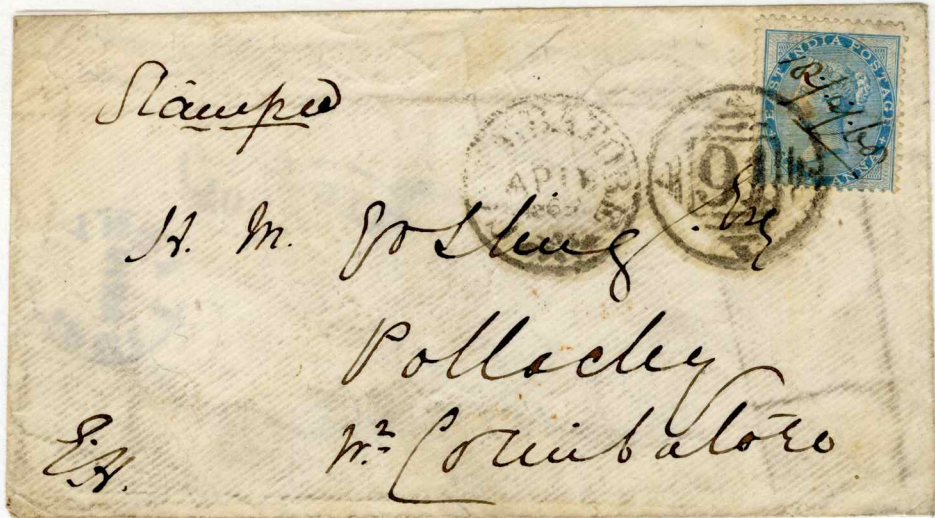 Stamped
EAST INDIA POSTAGE
AP 1
91
H. M. Gosling Esq
Pollachy
Nr Coimbatore
E.H.